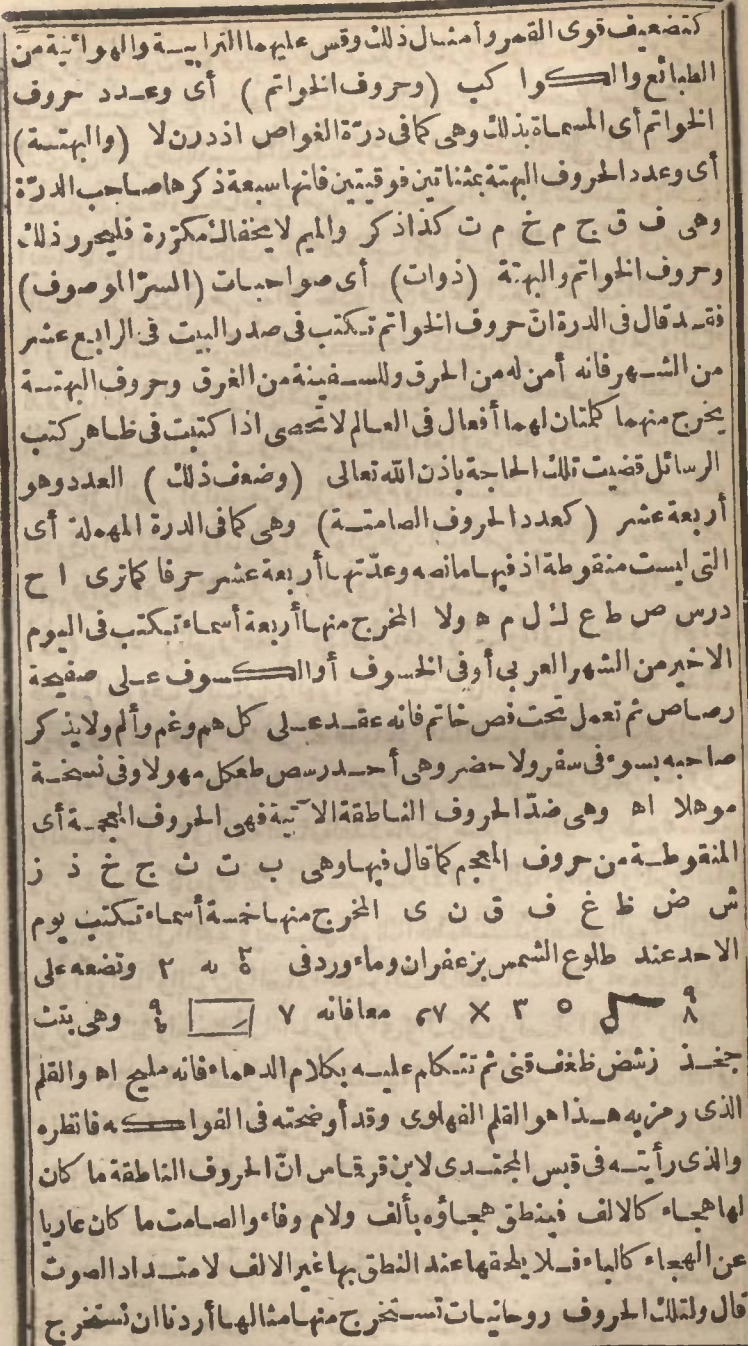 كتضعيف قوى القمر وأمثال ذلك وقس عليهما الترابية والهوائية من
الطبائع والكواكب (وحروف الخواتم) أى وعدد حروف
الخواتم أى المسماة بذلك وهى كما فى درّة الغواص اذدرن لا (والبهتة)
أى وعدد الحروف البهتة بمثناتين فوقيتين فانها سبعة ذكرها صاحب الدرّة
وهى ف ق ج م خ م ت كذا ذكر والميم لا يخفاك مكرّرة فليحرر ذلك
وحروف الخواتم والبهتة (ذوات) أى صواحبات (السرّ الموصوف)
فقد قال فى الدرة انّ حروف الخواتم تكتب فى صدر البيت فى الرابع عشر
من الشهر فانه أمن له من الحرق وللسفينة من الغرق وحروف البهتة
يخرج منهما كلمتان لهما أفعال فى العالم لا تحصى اذا كتبت فى ظاهر كتب
الرسائل قضيت تلك الحاجة باذن الله تعالى (وضعف ذلك) العدد وهو
أربعة عشر (كعدد الحروف الصامتة) وهى كما فى الدرة المهملة أى
التى ليست منقوطة اذ فيها مانصه وعدّتها أربعة عشر حرفا كما ترى ا ح
درس ص ط ع ك ل م ه ولا المخرج منها أربعة أسماء تكتب فى اليوم
الاخير من الشهر العربى أوفى الخسوف أو الكسوف على صفيحة
رصاص ثم تعمل تحت فص خاتم فانه عقد على كل هم وغم وألم ولا يذكر
صاحبه بسوء فى سفر ولا حضر وهى أحد رسص طعكل مهولا وفى نسخة
موهلا اه وهى ضدّ الحروف الناطقة الآتية فهى الحروف المعجمة أى
المنقوطة من حروف المعجم كما قال فيها وهى ب ت ث ج خ ذ ز
ش ض ظ غ ف ق ن ى المخرج منها خمسة أسماء تكتب يوم
الاحد عند طلوع الشمس بزعفران وماء ورد فى وتضعه على
معافانه وهى بتث
جخذ زشض ظغف قنى ثم تتكلم عليه بكلام الدهماء فانه مليح اه والقلم
الذى رمز به هذا هو القلم الفهلوى وقد أوضحته فى الفواكه فانظره
والذى رأيته فى قبس المجتدى لابن قرقماس انّ الحروف الناطقة ما كان
لها هجاء كالالف فينطق هجاؤه بألف ولام وفاء والصامت ما كان عاريا
عن الهجاء كالباء فلا يلحقها عند النطق بها غير الالف لامتداد الصوت
قال ولتلك الحروف روحانيات تستخرج منها مثالها أردنا ان نستخرج